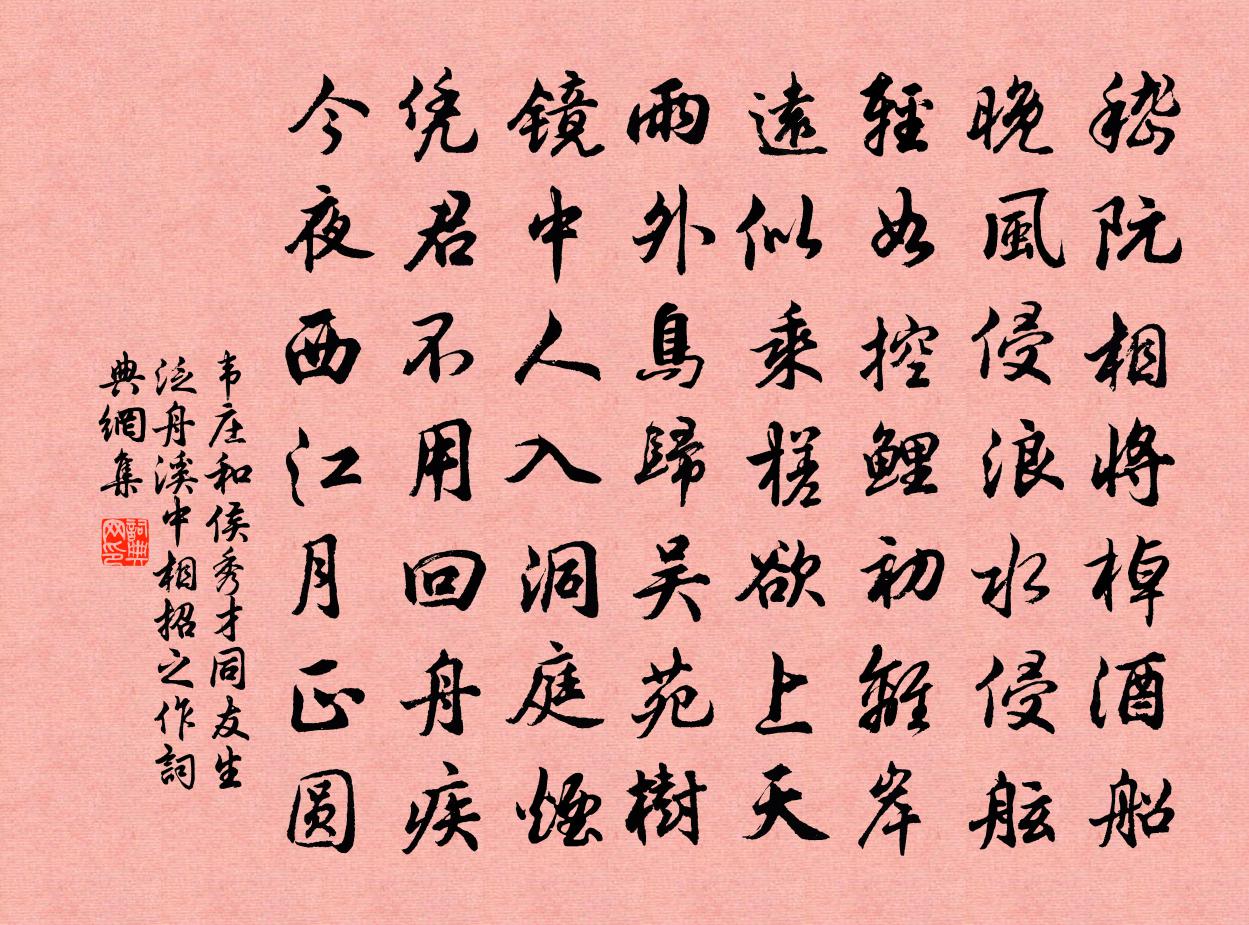 嵇阮相將棹酒船
晚風侵浪水侵舷
輕如控鯉初離岸
遠似乘槎欲上天
雨外鳥歸吳苑樹
镜中人入洞庭煙
凭君不用回舟疾
今夜西江月正圆
韦庄和侯秀才同友生
泛舟溪中相招之作詞
典網集
詞典
网印